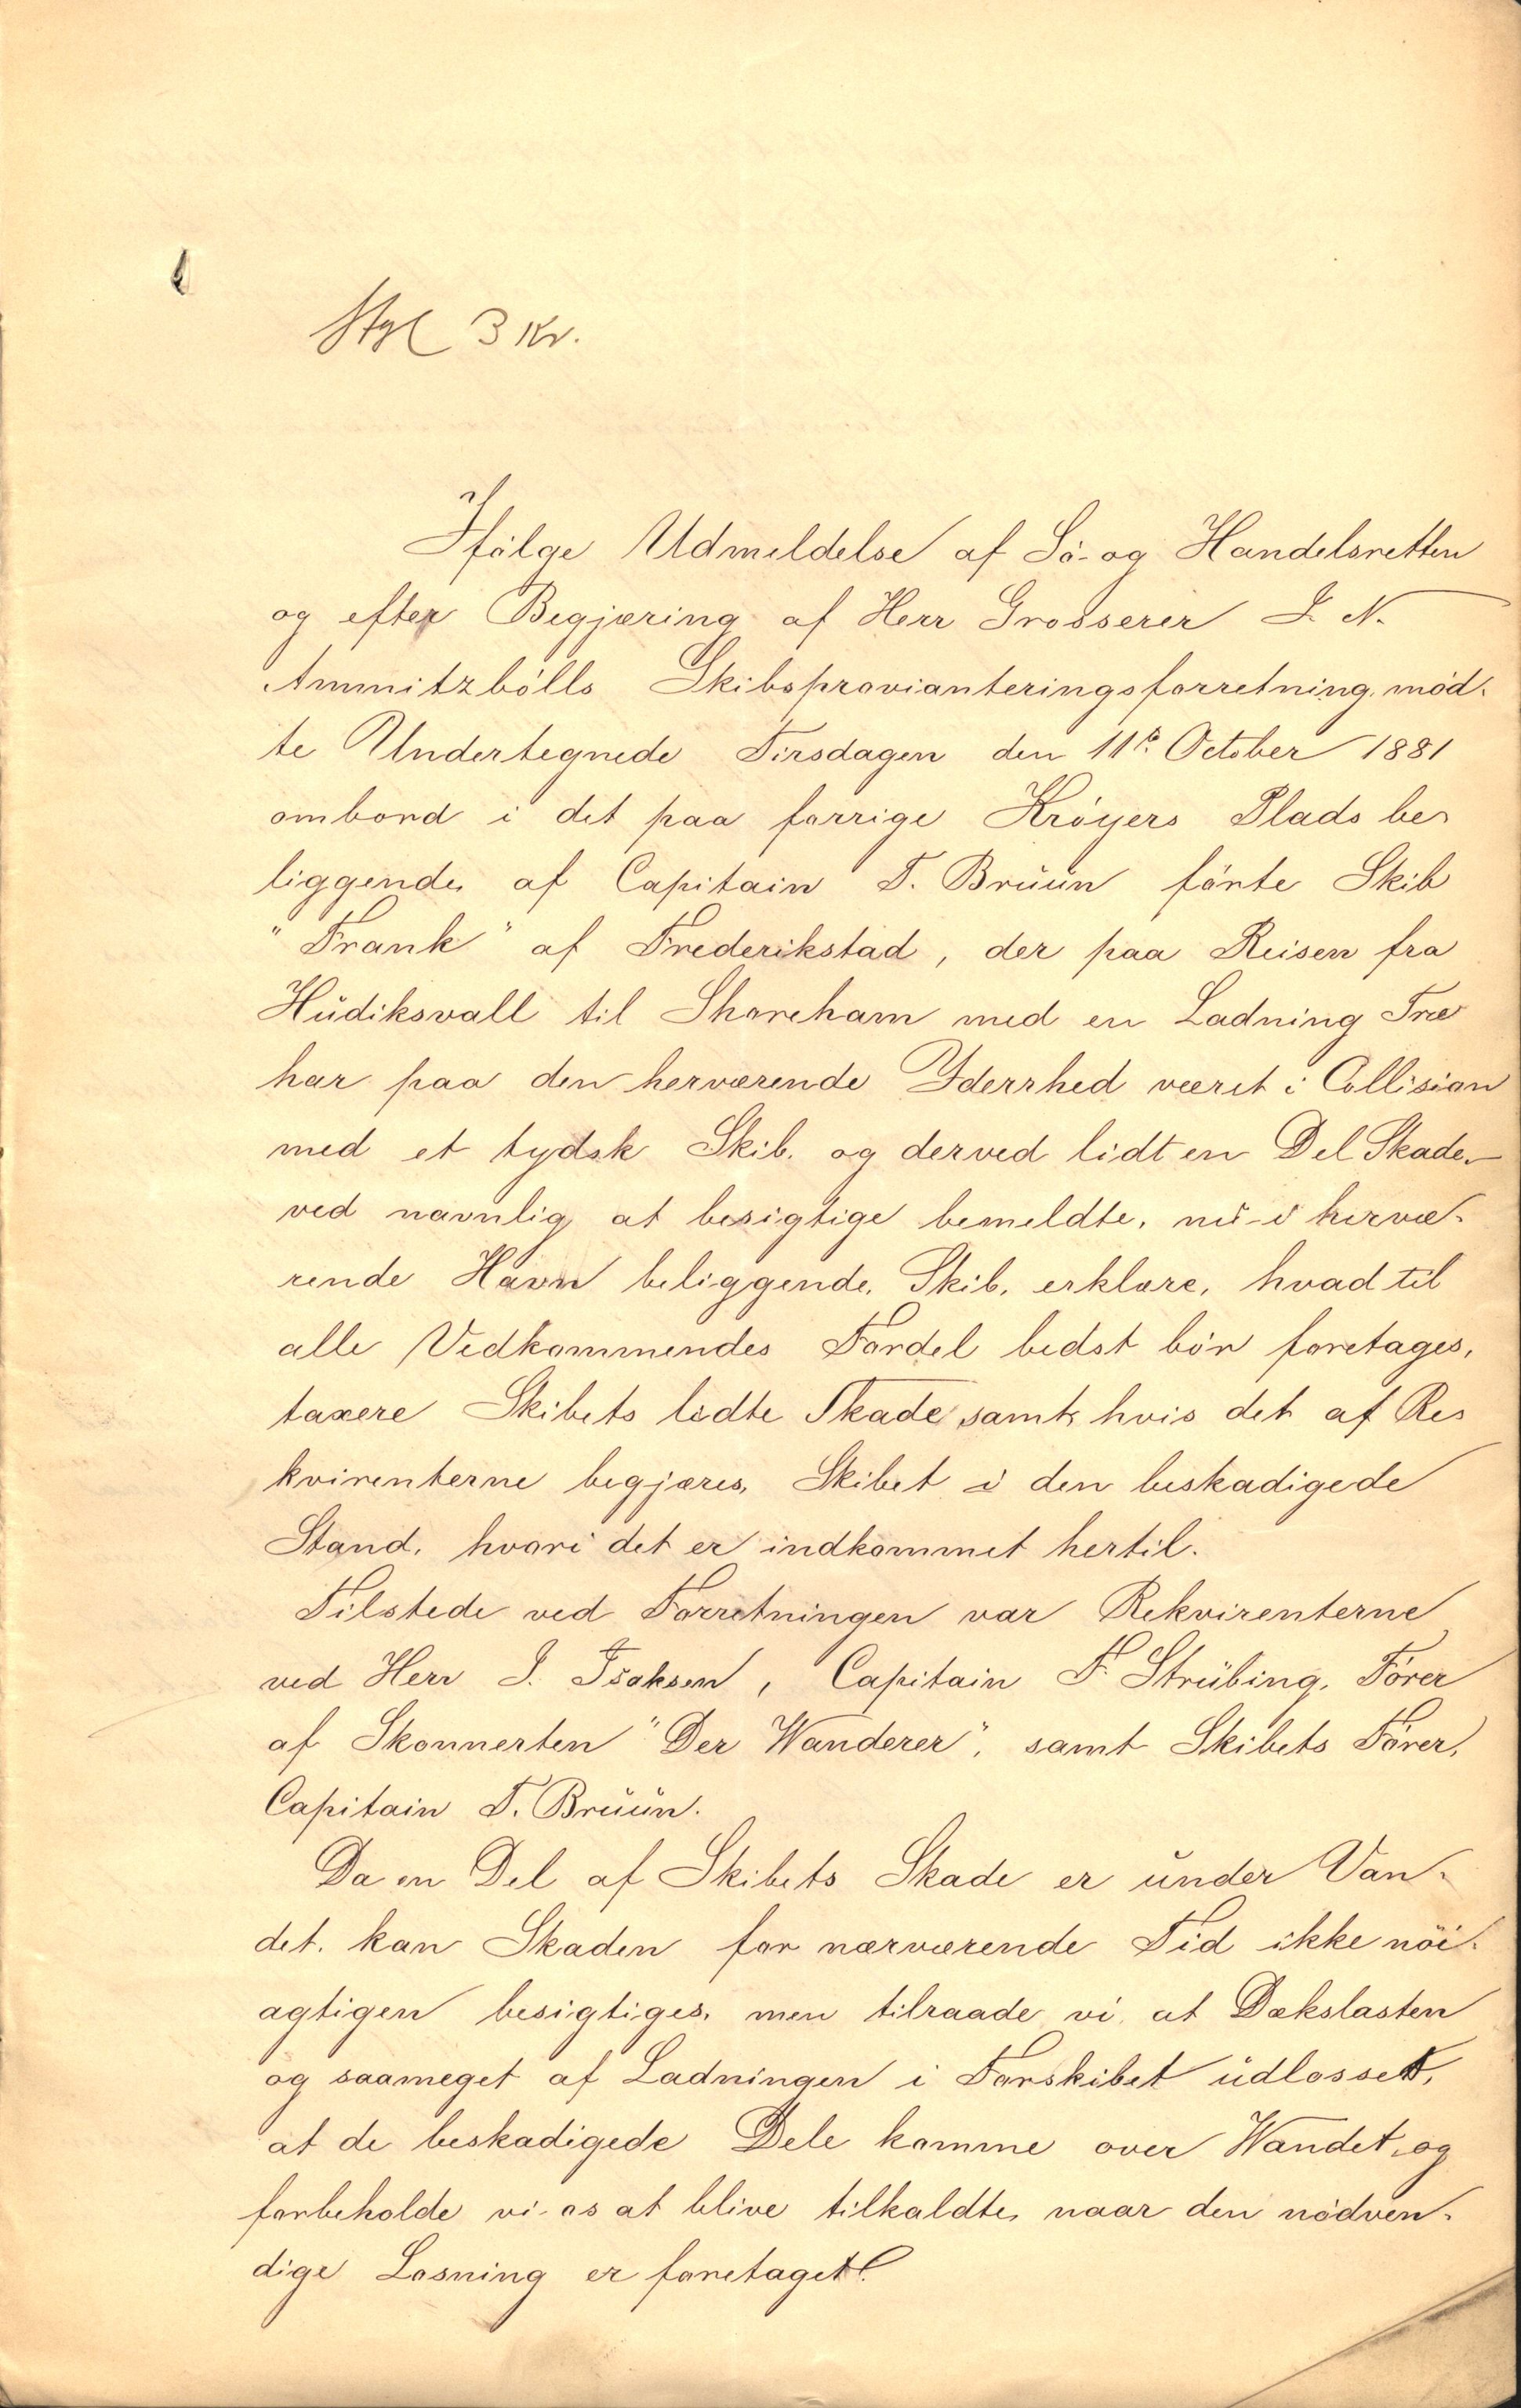 Stpl 3 Kr.
Ifölge Udmeldelse af Sö- og Handelsretten
og efter Begjæring af Herr Grosserer L. N.
Ammitzbölls Skibsprovianteringsforretning, möd-
te Undertegnede Tirsdagen den 11te October 1881
ombord i det paa forrige Kröyers Plads be-
liggende, af Capitain T. Bruun förte Skib
"Frank" af Frederikstad, der paa Reisen fra
Hudiksvall til Shoreham med en Ladning Træ
har paa den herværende Yderrhed været i Collision
med et tydsk Skib, og derved lidt en Del Skade,
ved navnlig at besigtige bemeldte, nu i hervæ-
rende Havn beliggende, Skib, erklære, hvad til
alle Vedkommendes Fordel bedst bör foretages,
taxere Skibets lidte Skade samt, hvis det af Re-
kvirenterne begjæres, Skibet i den beskadigede
Stand, hvori det er indkommet hertil.
Tilstede ved Forretningen var Rekvirenterne
ved Herr I. Isaksen, Capitain F. Strübing, Förer
af Skonnerten "Der Wanderer", samt Skibets Förer,
Capitain T. Bruun.
Da en Del af Skibets Skade er under Van-
det, kan Skaden for nærværende Tid ikke nöi-
agtigen besigtiges, men tilraade vi, at Dækslasten
og saameget af Ladningen i Forskibet udlosses,
at de beskadigede Dele komme over Wandet, og
forbeholde vi os at blive tilkaldte, naar den nödven-
dige Losning er foretaget.